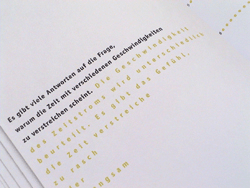 Es gibt viele Antworten auf die Frage,
warum die Zeit mit verschiedenen Geschwindigkeiten
zu verstreichen scheint. Die Geschwindigkeit
des Zeitstroms wird unterschiedlich
beurteilt. Es gibt das Gefühl,
die Zeit verstreiche
zu rasch
langsam